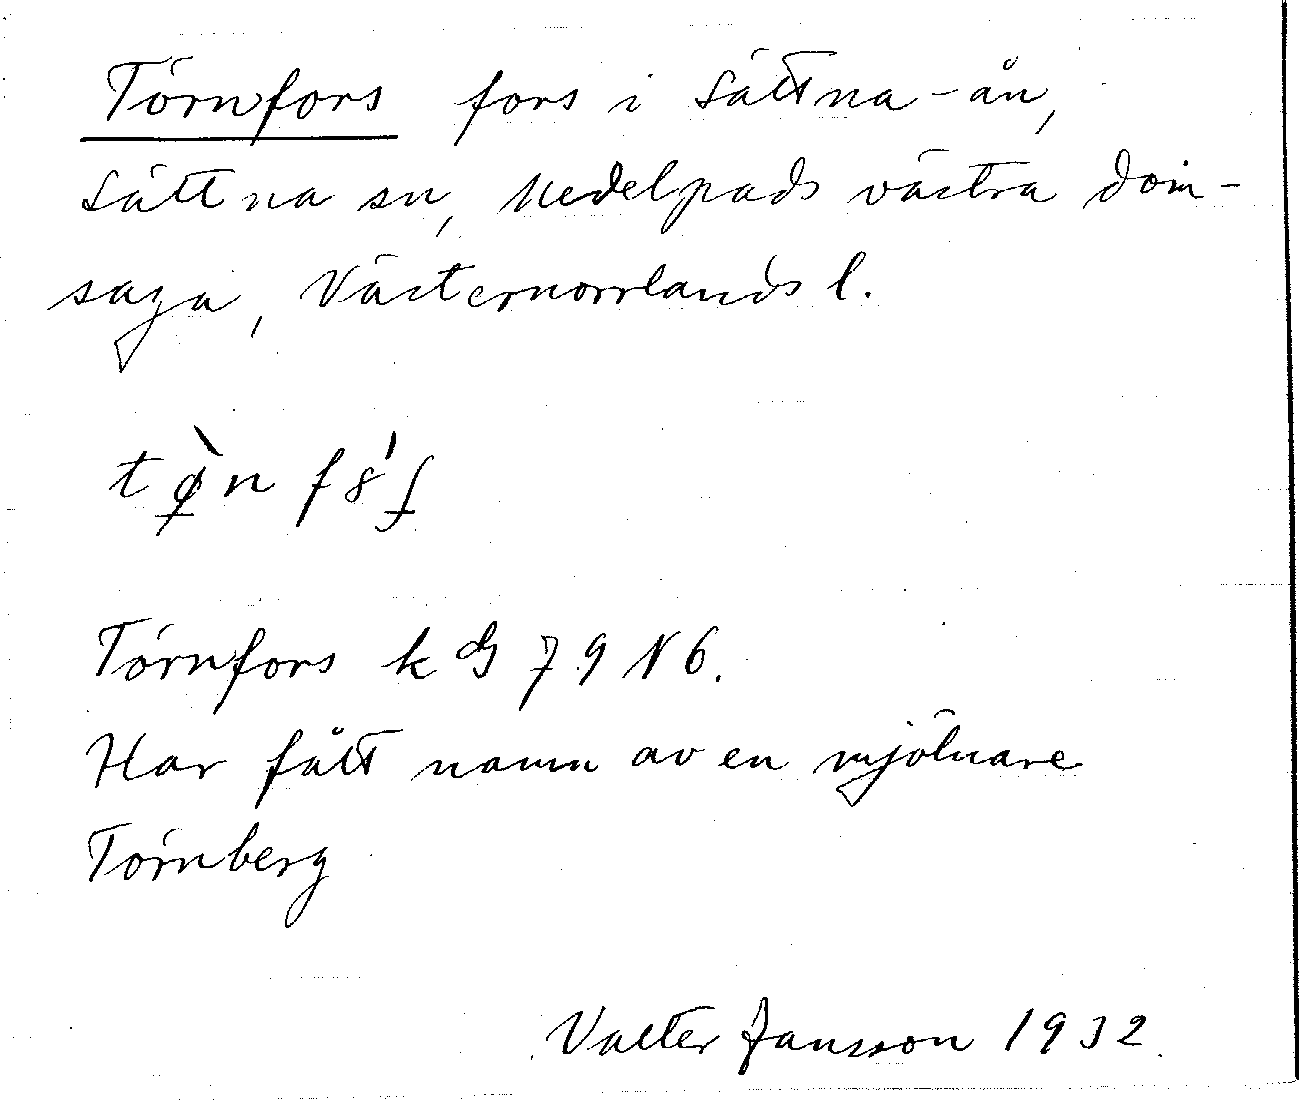 Törnfors fors i Sättna-ån,
Sättna sn, Medelpads västra dom-
saga, Västernorrlands l.
Törnfors k G 79 N6.
Har fått namn av en mjölnare
Törnberg
Valter Jansson 1932